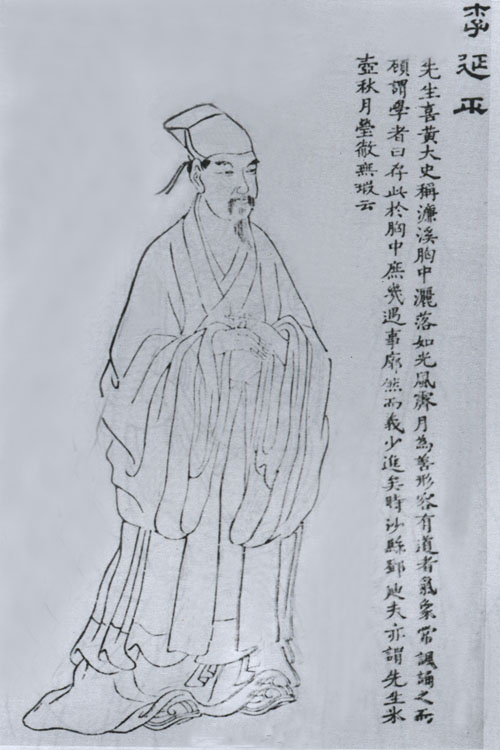 李延平
先生喜黃大史稱濂溪胸中灑落如光風霽月為善形容有道者氣象常諷誦之而
顧謂學者曰存此於胸中庶幾遇事廓然而義少進矣時沙縣鄧迪夫亦謂先生氷
壺秋月瑩徹無瑕云